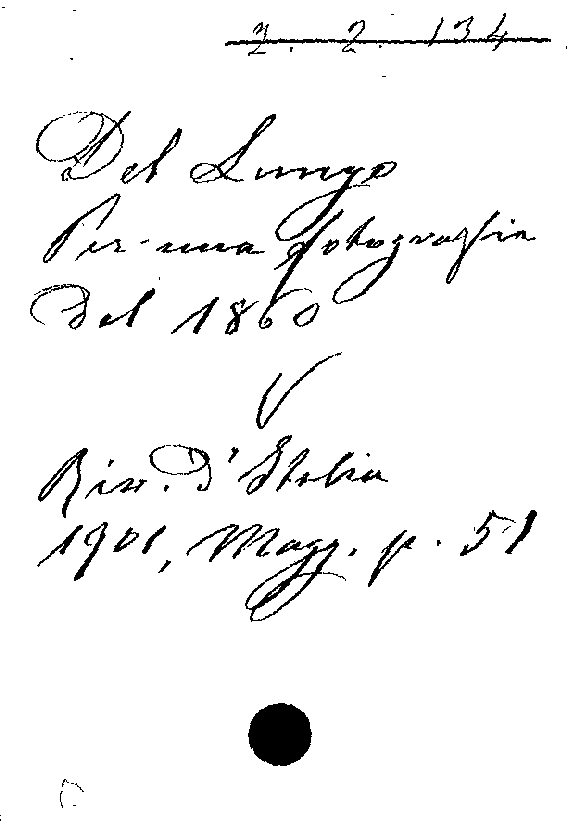 2. 2. 134
Del Lungo
Per una fotografia
del 1860
V
Riv. D'Italia
1901, Magg. p. 51